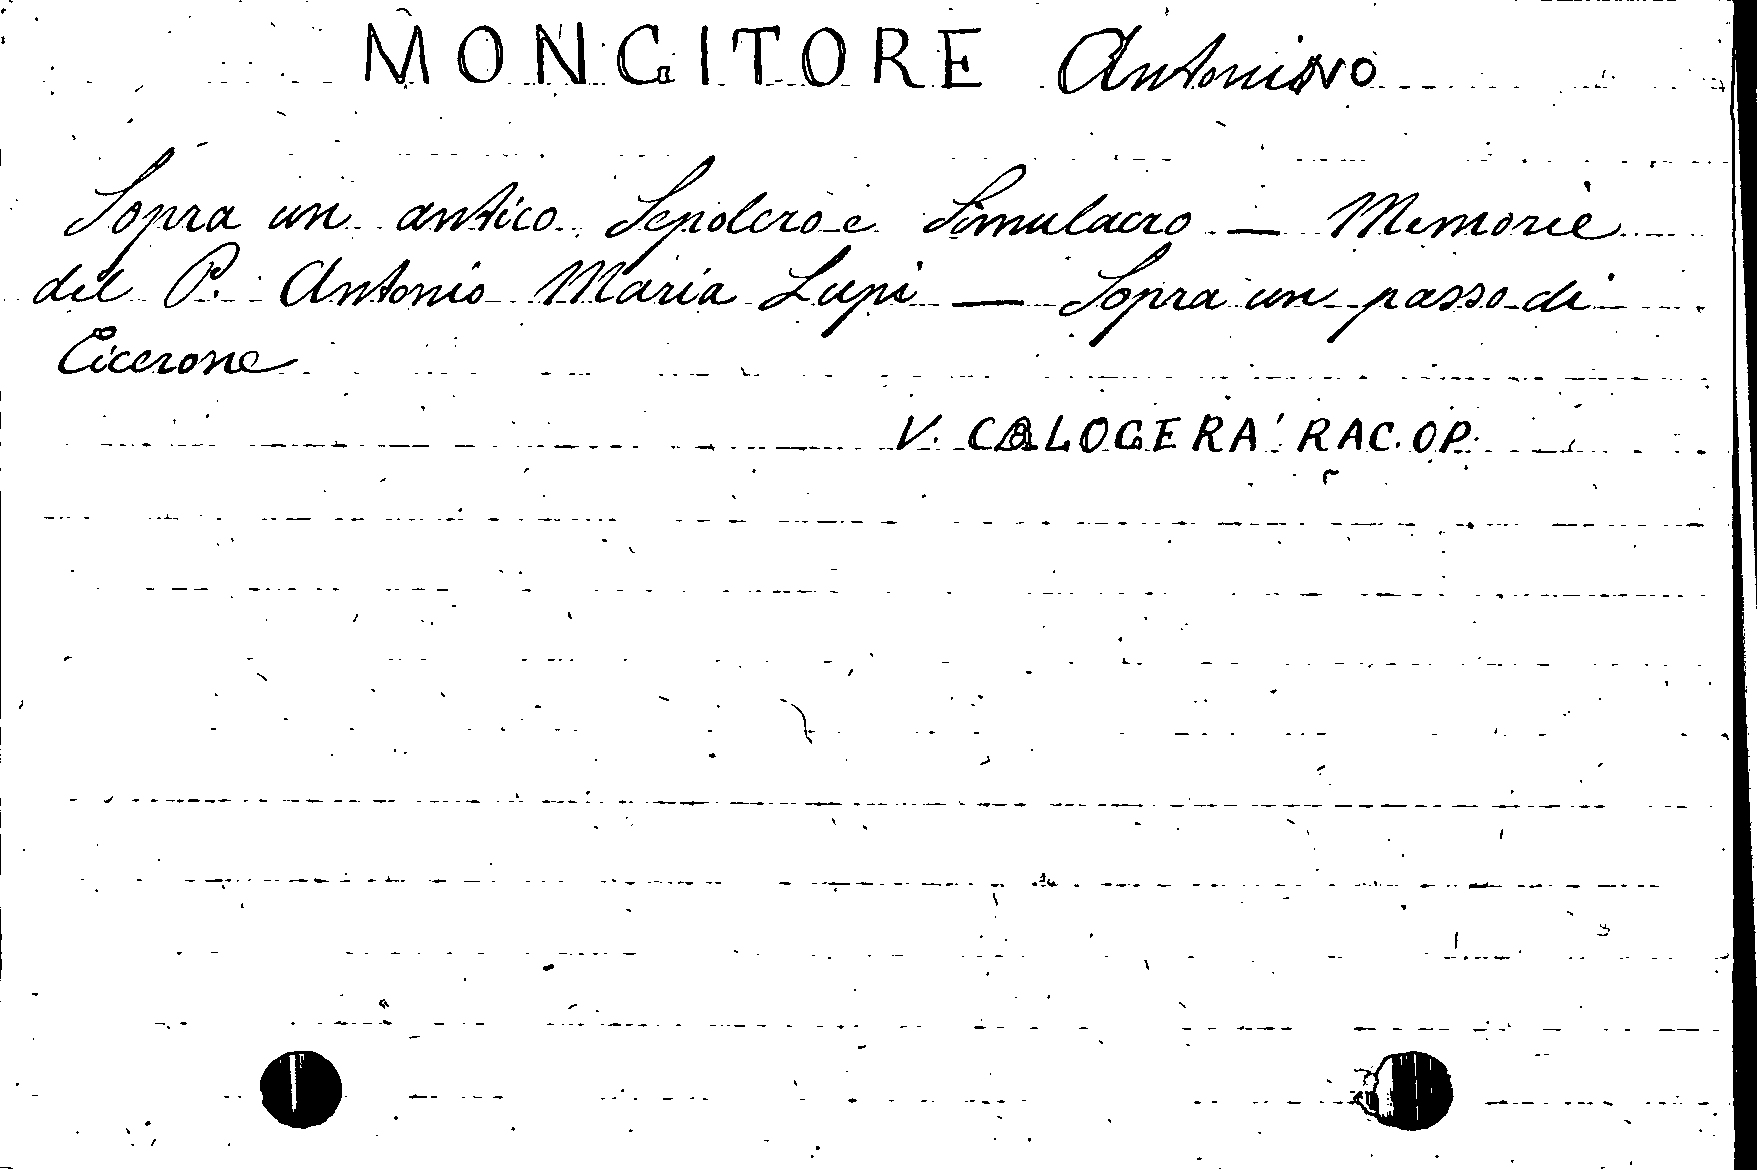 MONGITORE Antonino
Sopra un antico Sepolcro e Simulacro — Memorie
del P. Antonio Maria Lupi — Sopra un passo di
Cicerone
V. CALOGERA' RAC. OP.